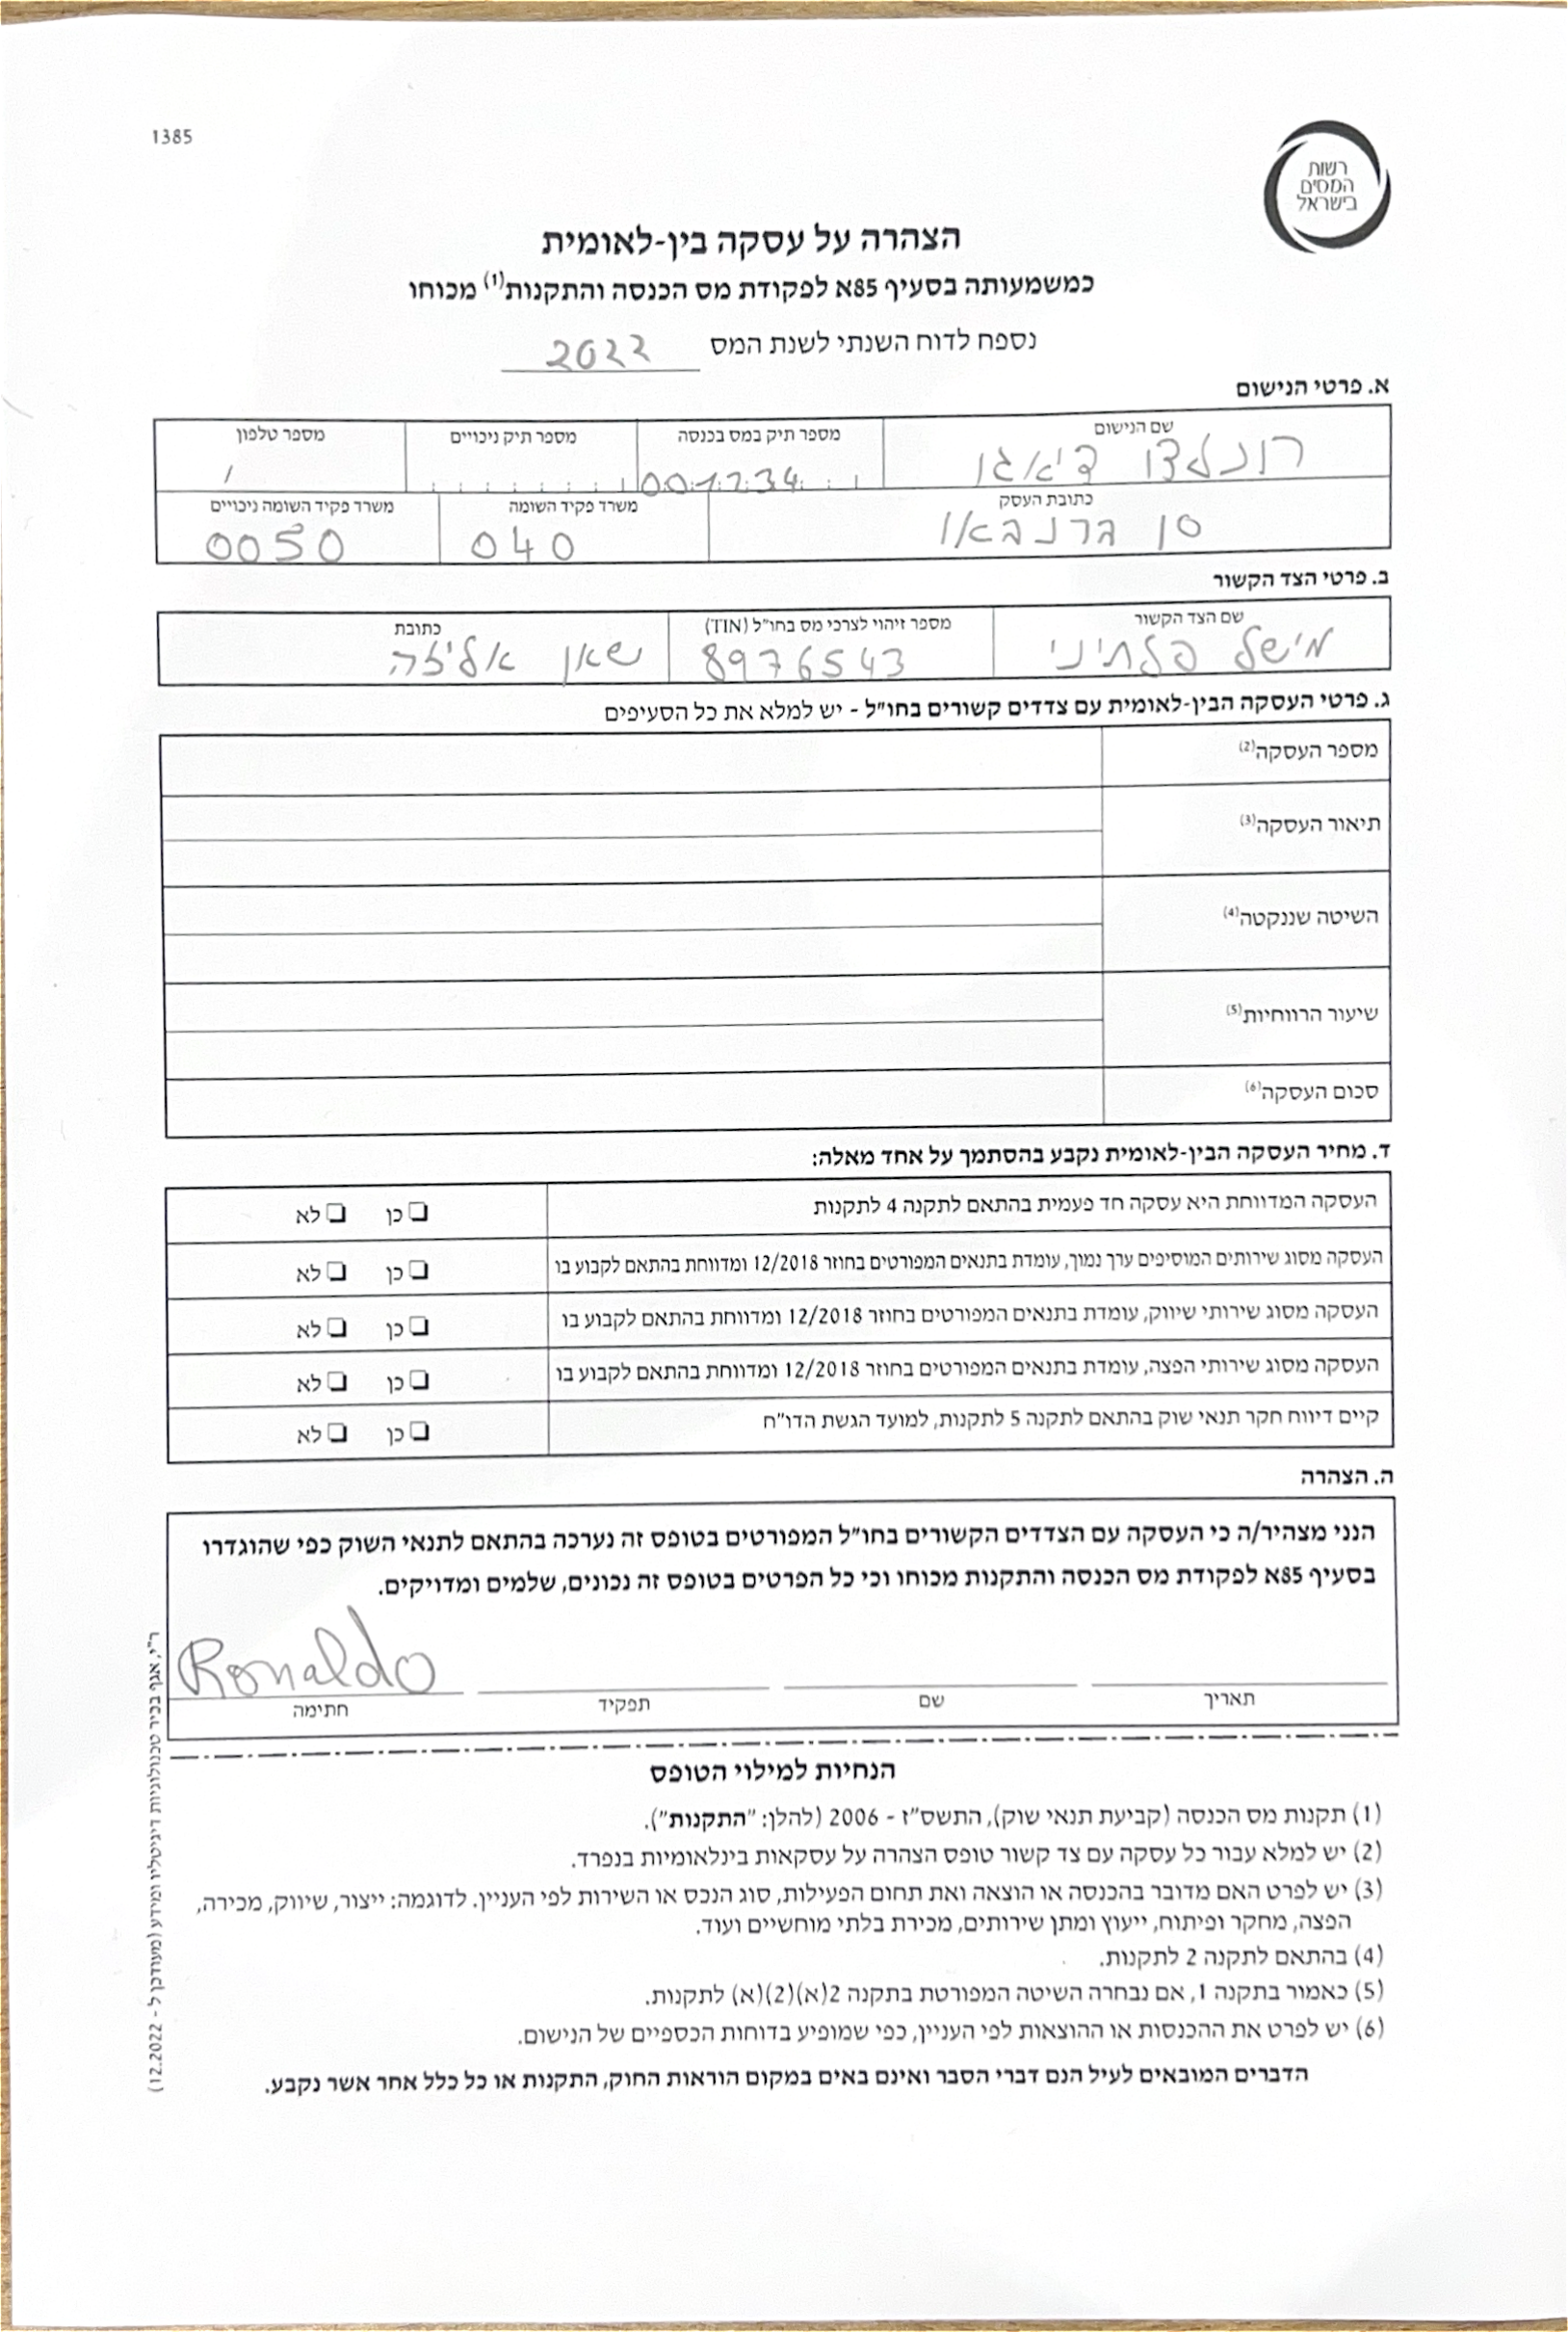 1385
רשות
המסים
בישראל
הצהרה על עסקה בין-לאומית
כמשמעותה בסעיף 85א לפקודת מס הכנסה והתקנות(1) מכוחו
נספח לדוח השנתי לשנת המס 2022
א. פרטי הנישום
שם הנישום מספר תיק במס בכנסה מספר תיק ניכויים מספר טלפון
רונלדו דיאגו 001234 /
כתובת העסק משרד פקיד השומה משרד פקיד השומה ניכויים
סן ברנבאו 040 0050
ב. פרטי הצד הקשור
שם הצד הקשור מספר זיהוי לצרכי מס בחו"ל (TIN) כתובת
מישל פלתיני 8976543 שאן אליזה
ג. פרטי העסקה הבין-לאומית עם צדדים קשורים בחו"ל - יש למלא את כל הסעיפים
מספר העסקה(2)
תיאור העסקה(3)
השיטה שננקטה(4)
שיעור הרווחיות(5)
סכום העסקה(6)
ד. מחיר העסקה הבין-לאומית נקבע בהסתמך על אחד מאלה:
העסקה המדווחת היא עסקה חד פעמית בהתאם לתקנה 4 לתקנות ☐ כן ☐ לא
העסקה מסוג שירותים המוסיפים ערך נמוך, עומדת בתנאים המפורטים בחוזר 12/2018 ומדווחת בהתאם לקבוע בו ☐ כן ☐ לא
העסקה מסוג שירותי שיווק, עומדת בתנאים המפורטים בחוזר 12/2018 ומדווחת בהתאם לקבוע בו ☐ כן ☐ לא
העסקה מסוג שירותי הפצה, עומדת בתנאים המפורטים בחוזר 12/2018 ומדווחת בהתאם לקבוע בו ☐ כן ☐ לא
קיים דיווח חקר תנאי שוק בהתאם לתקנה 5 לתקנות, למועד הגשת הדו"ח ☐ כן ☐ לא
ה. הצהרה
הנני מצהיר/ה כי העסקה עם הצדדים הקשורים בחו"ל המפורטים בטופס זה נערכה בהתאם לתנאי השוק כפי שהוגדרו
בסעיף 85א לפקודת מס הכנסה והתקנות מכוחו וכי כל הפרטים בטופס זה נכונים, שלמים ומדויקים.
Ronaldo
תאריך שם תפקיד חתימה
הנחיות למילוי הטופס
(1) תקנות מס הכנסה (קביעת תנאי שוק), התשס"ז - 2006 (להלן: "התקנות").
(2) יש למלא עבור כל עסקה עם צד קשור טופס הצהרה על עסקאות בינלאומיות בנפרד.
(3) יש לפרט האם מדובר בהכנסה או הוצאה ואת תחום הפעילות, סוג הנכס או השירות לפי העניין. לדוגמה: ייצור, שיווק, מכירה,
הפצה, מחקר ופיתוח, ייעוץ ומתן שירותים, מכירת בלתי מוחשיים ועוד.
(4) בהתאם לתקנה 2 לתקנות.
(5) כאמור בתקנה 1, אם נבחרה השיטה המפורטת בתקנה 2(א)(2)(א) לתקנות.
(6) יש לפרט את ההכנסות או ההוצאות לפי העניין, כפי שמופיע בדוחות הכספיים של הנישום.
הדברים המובאים לעיל הנם דברי הסבר ואינם באים במקום הוראות החוק, התקנות או כל כלל אחר אשר נקבע.
ר"י, אגף בכיר טכנולוגיות דיגיטליו ומידע (מעודכן ל - 12.2022)